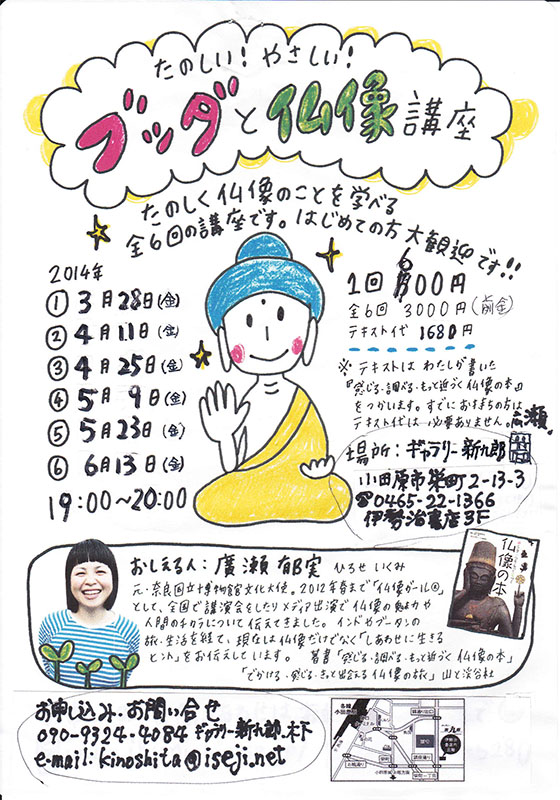 たのしい!やさしい!
ブッダと仏像講座
たのしく仏像のことを学べる
全6回の講座です。はじめての方 大歓迎です!!
2014年
① 3月28日(金)
② 4月11日(金)
③ 4月25日(金)
④ 5月9日(金)
⑤ 5月23日(金)
⑥ 6月13日(金)
19:00〜20:00
1回 600円
全6回 3000円(前金)
テキスト代 1680円
※テキストは わたしが書いた
『感じる・調べる・もっと近づく仏像の本』
をつかいます。すでにお持ちの方は
テキスト代は 必要ありません。廣瀬
場所:ギャラリー新九郎
小田原市栄町2-13-3
☎0465-22-1366
伊勢治書店3F
おしえる人:廣瀬郁実 ひろせ いくみ
元・奈良国立博物館文化大使。2012年春まで「仏像ガール®」
として、全国で講演会をしたりメディア出演で仏像の魅力や
人間のチカラについて伝えてきました。インドやブータンの
旅・生活を経て、現在は仏像だけでなく「しあわせに生きる
ヒント」をお伝えしています。 著書「感じる・調べる・もっと近づく仏像の本」
「でかける・感じる・もっと出会える仏像の旅」山と溪谷社
仏像の本
お申し込み・お問い合せ
090-9324-4084 ギャラリー新九郎・木下
e-mail: kinoshita@iseji.net